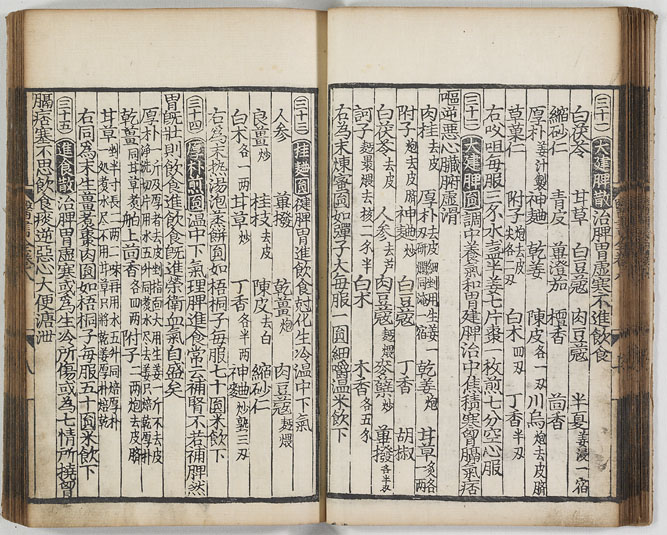 三十一 大建脾散 治脾胃虛寒不進飲食
白茯苓 甘草 白豆蔻 肉豆蔻 半夏姜浸一宿
縮砂仁 青皮 蓽澄茄 檀香 茴香
厚朴姜汁製 神麯 乾姜 陳皮各一刄 川烏炮去皮臍
草菓仁 附子炮去皮尖各二刄 白木四刄 丁香半刄
右㕮咀每服三水盞半姜七片棗一枚煎七分空心服
三十二 大建脾圓 調中養氣和胃建脾治中焦積寒胷膈氣痞
嘔逆惡心臟腑虛滑
肉桂去皮 厚朴去皮細剉用生姜一刄研爛同淹一宿 乾姜炮 甘草炙各一兩
附子炮去皮臍 神麯炒 白豆蔻 丁香 胡椒
白茯苓去皮 人参去芦 肉豆蔻麪煨 麥蘖炒 蓽撥各半刄
訶子麪裹煨去核二刄半 白木 木香各五刄
右為末煉蜜圓如彈子大每服一圓細嚼溫米飲下
三十三 桂麯圓 健脾胃進飲食尅化生冷溫中下氣
人参 蓽撥 乾薑炮 肉豆蔻麪煨
良薑炒 桂枝去皮 陳皮去白 縮砂仁
白木各一兩 甘草炒 丁香各半兩 神麯炒熟三刄
右為末然湯泡蒸餅圓如梧桐子每服七十圓米飲下
三十四 厚朴煎圓 溫中下氣理脾進食常云補腎不若補脾然
胃旣壯則飲食進飲食旣進榮衛血氣自盛矣
乾薑 舡上茴香各四兩 附子二兩炮去皮臍
右同為末生薑煮棗肉圓如梧桐子每服五十圓米飲下
三十五 進食散 治脾胃虛寒或為生冷所傷或為七情所撓胷
膈痞塞不思飲食痰逆惡心大便溏泄